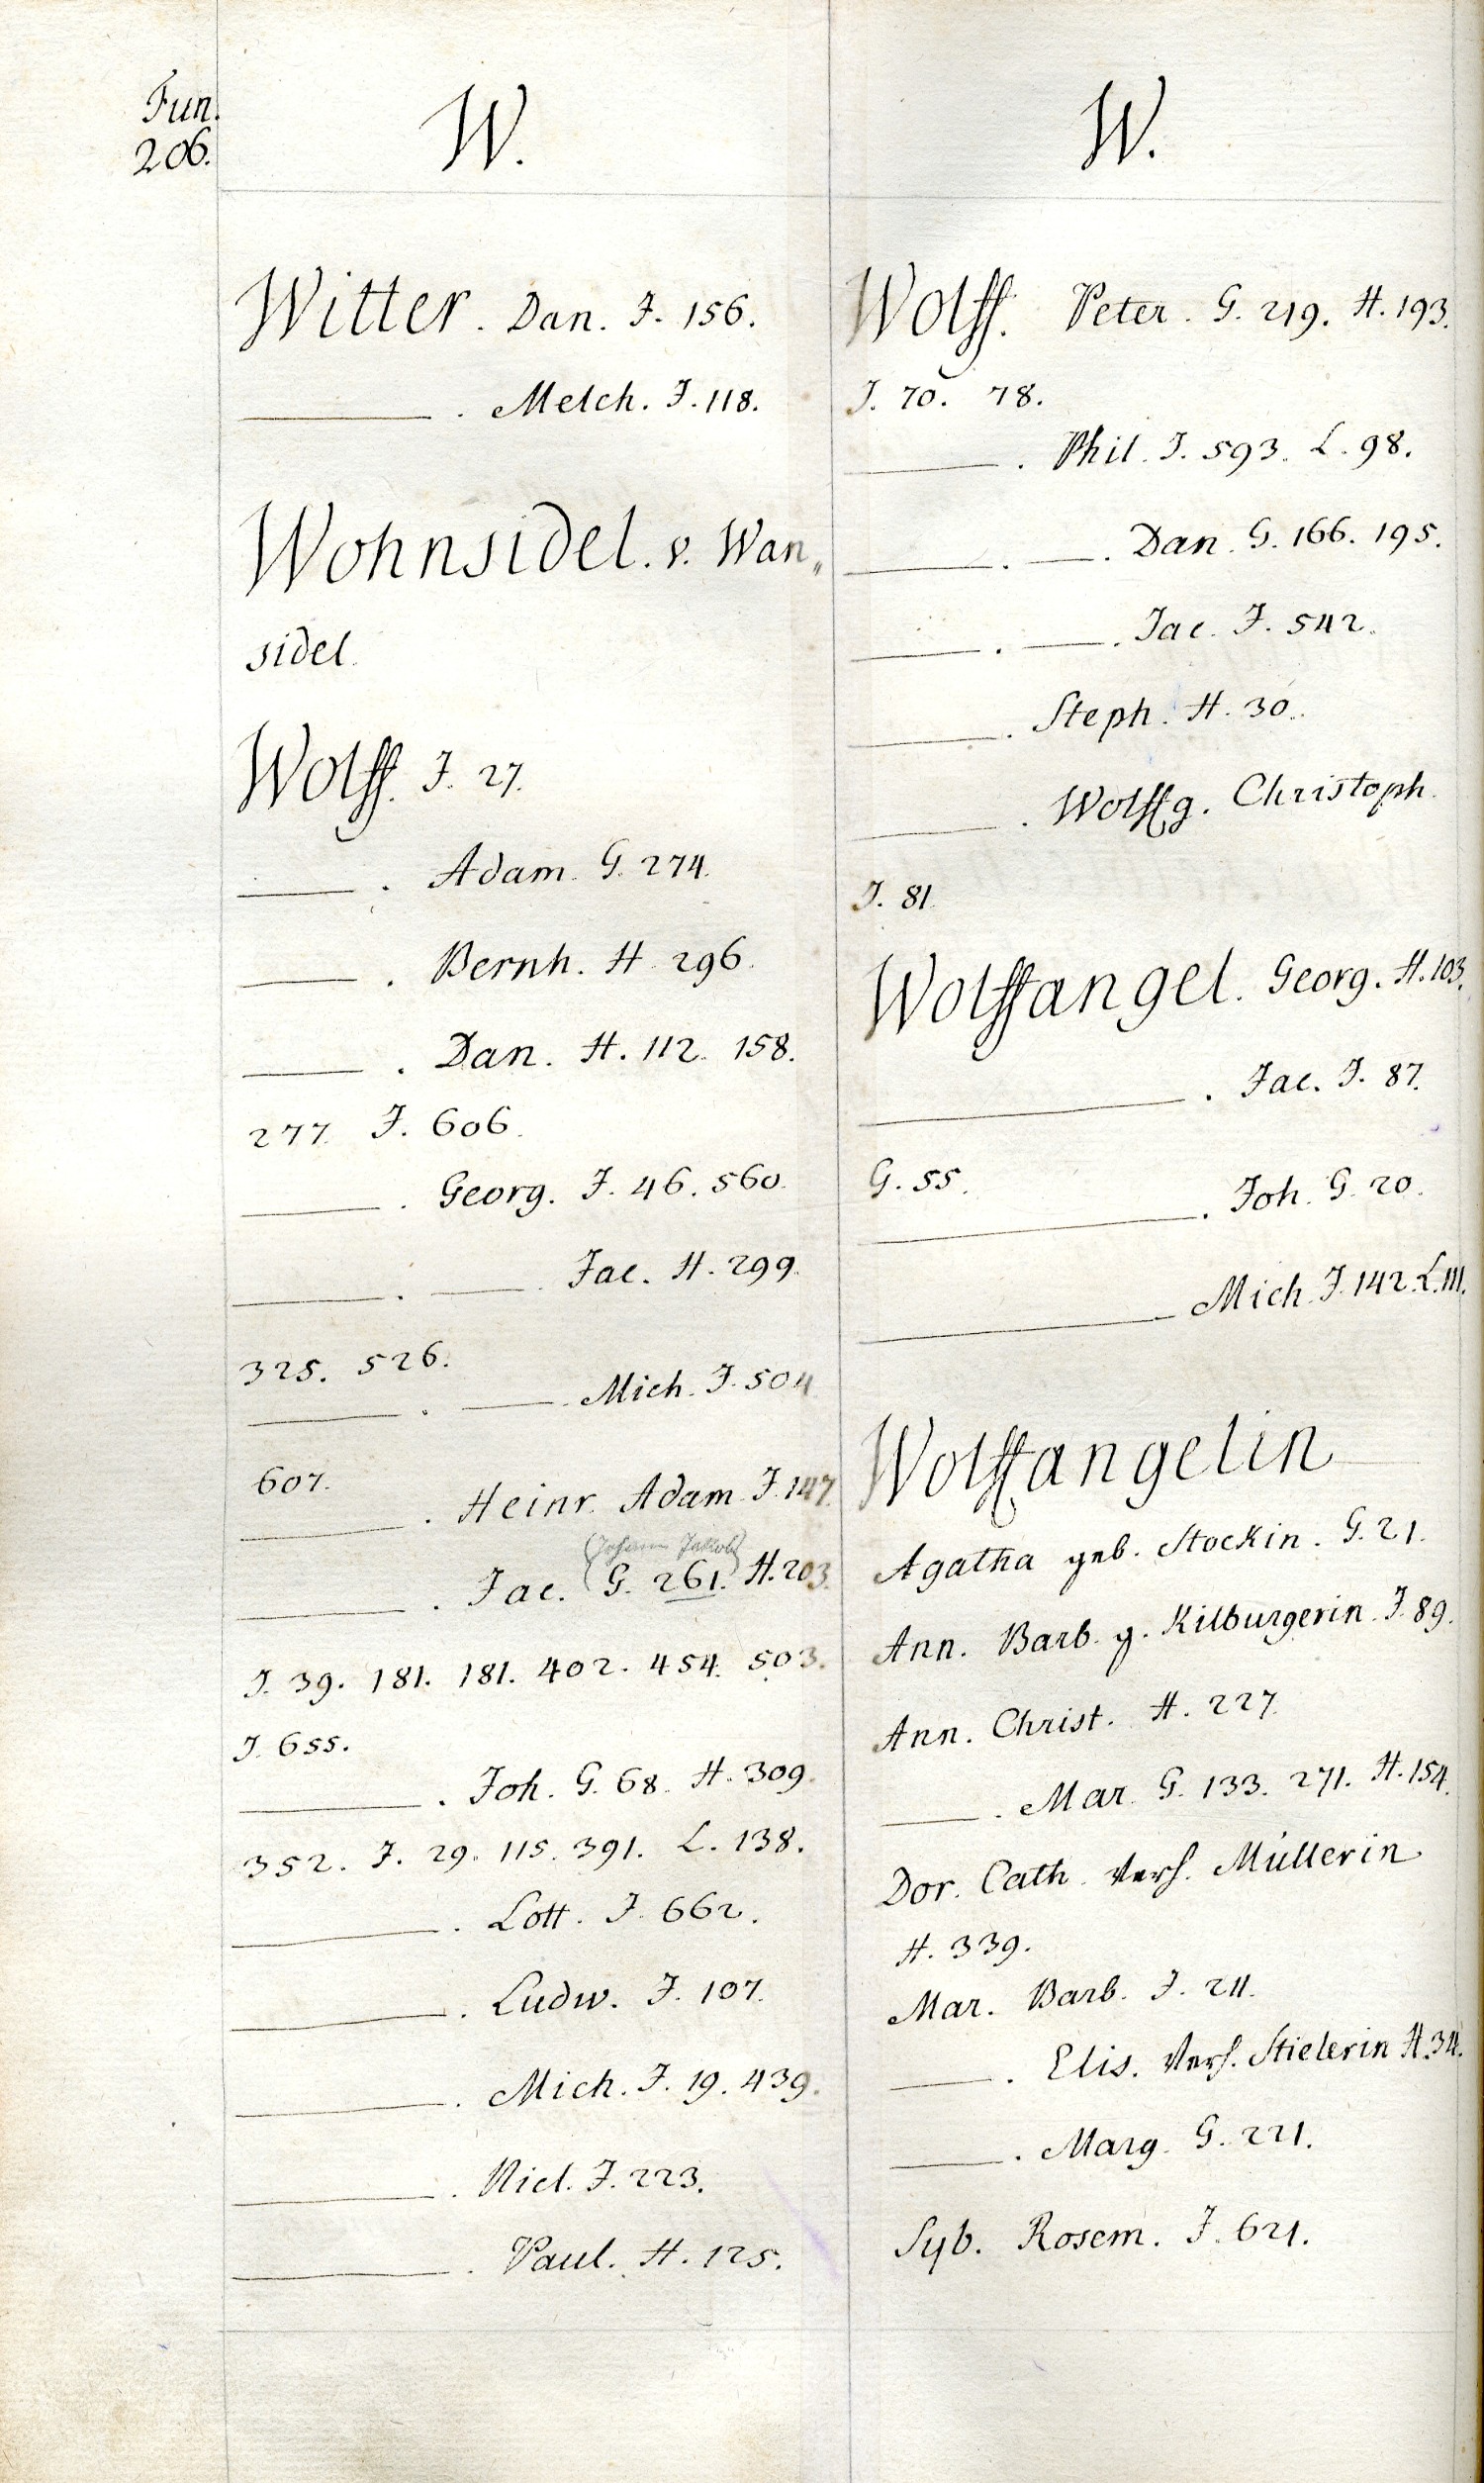 Fun.
206.
W.
Witter. Dan. J. 156.
——— . Melch. J. 118.
Wohnsidel. v. Wan„
sidel.
Wolff. J. 27.
——— . Adam. G. 274.
——— . Bernh. H. 296.
——— . Dan. H. 112. 158.
277. J. 606.
——— . Georg. J. 46. 560.
——— . ——— . Jac. H. 299.
325. 526.
——— . ——— . Mich. J. 504.
607.
——— . Heinr. Adam. J. 147.
(Johann Jakob)
——— . Jac. G. 261. H. 203.
J. 39. 181. 181. 402. 454. 503.
J. 655.
——— . Joh. G. 68. H. 309.
352. J. 29. 115. 391. L. 138.
——— . Lott. J. 662.
——— . Ludw. J. 107.
——— . Mich. J. 19. 439.
——— . Nicl. J. 223.
——— . Paul. H. 125.
W.
Wolff. Peter. G. 219. H. 193.
J. 70. 78.
——— . Phil. J. 593. L. 98.
——— . ——— . Dan. G. 166. 195.
——— . ——— . Jac. J. 542.
——— . Steph. H. 30.
——— . Wolffg. Christoph.
J. 81.
Wolffangel. Georg. H. 103.
——— . Jac. J. 87.
G. 55.
——— . Joh. G. 20.
——— Mich. J. 142. L. 111.
Wolffangelin
Agatha geb. Stockin. G. 21.
Ann. Barb. g. Kilburgerin. J. 89.
Ann. Christ. H. 227.
——— . Mar. G. 133. 271. H. 154.
Dor. Cath. verh. Müllerin
H. 339.
Mar. Barb. J. 211.
——— . Elis. verh. Stielerin H. 34.
——— . Marg. G. 221.
Syb. Rosem. J. 621.